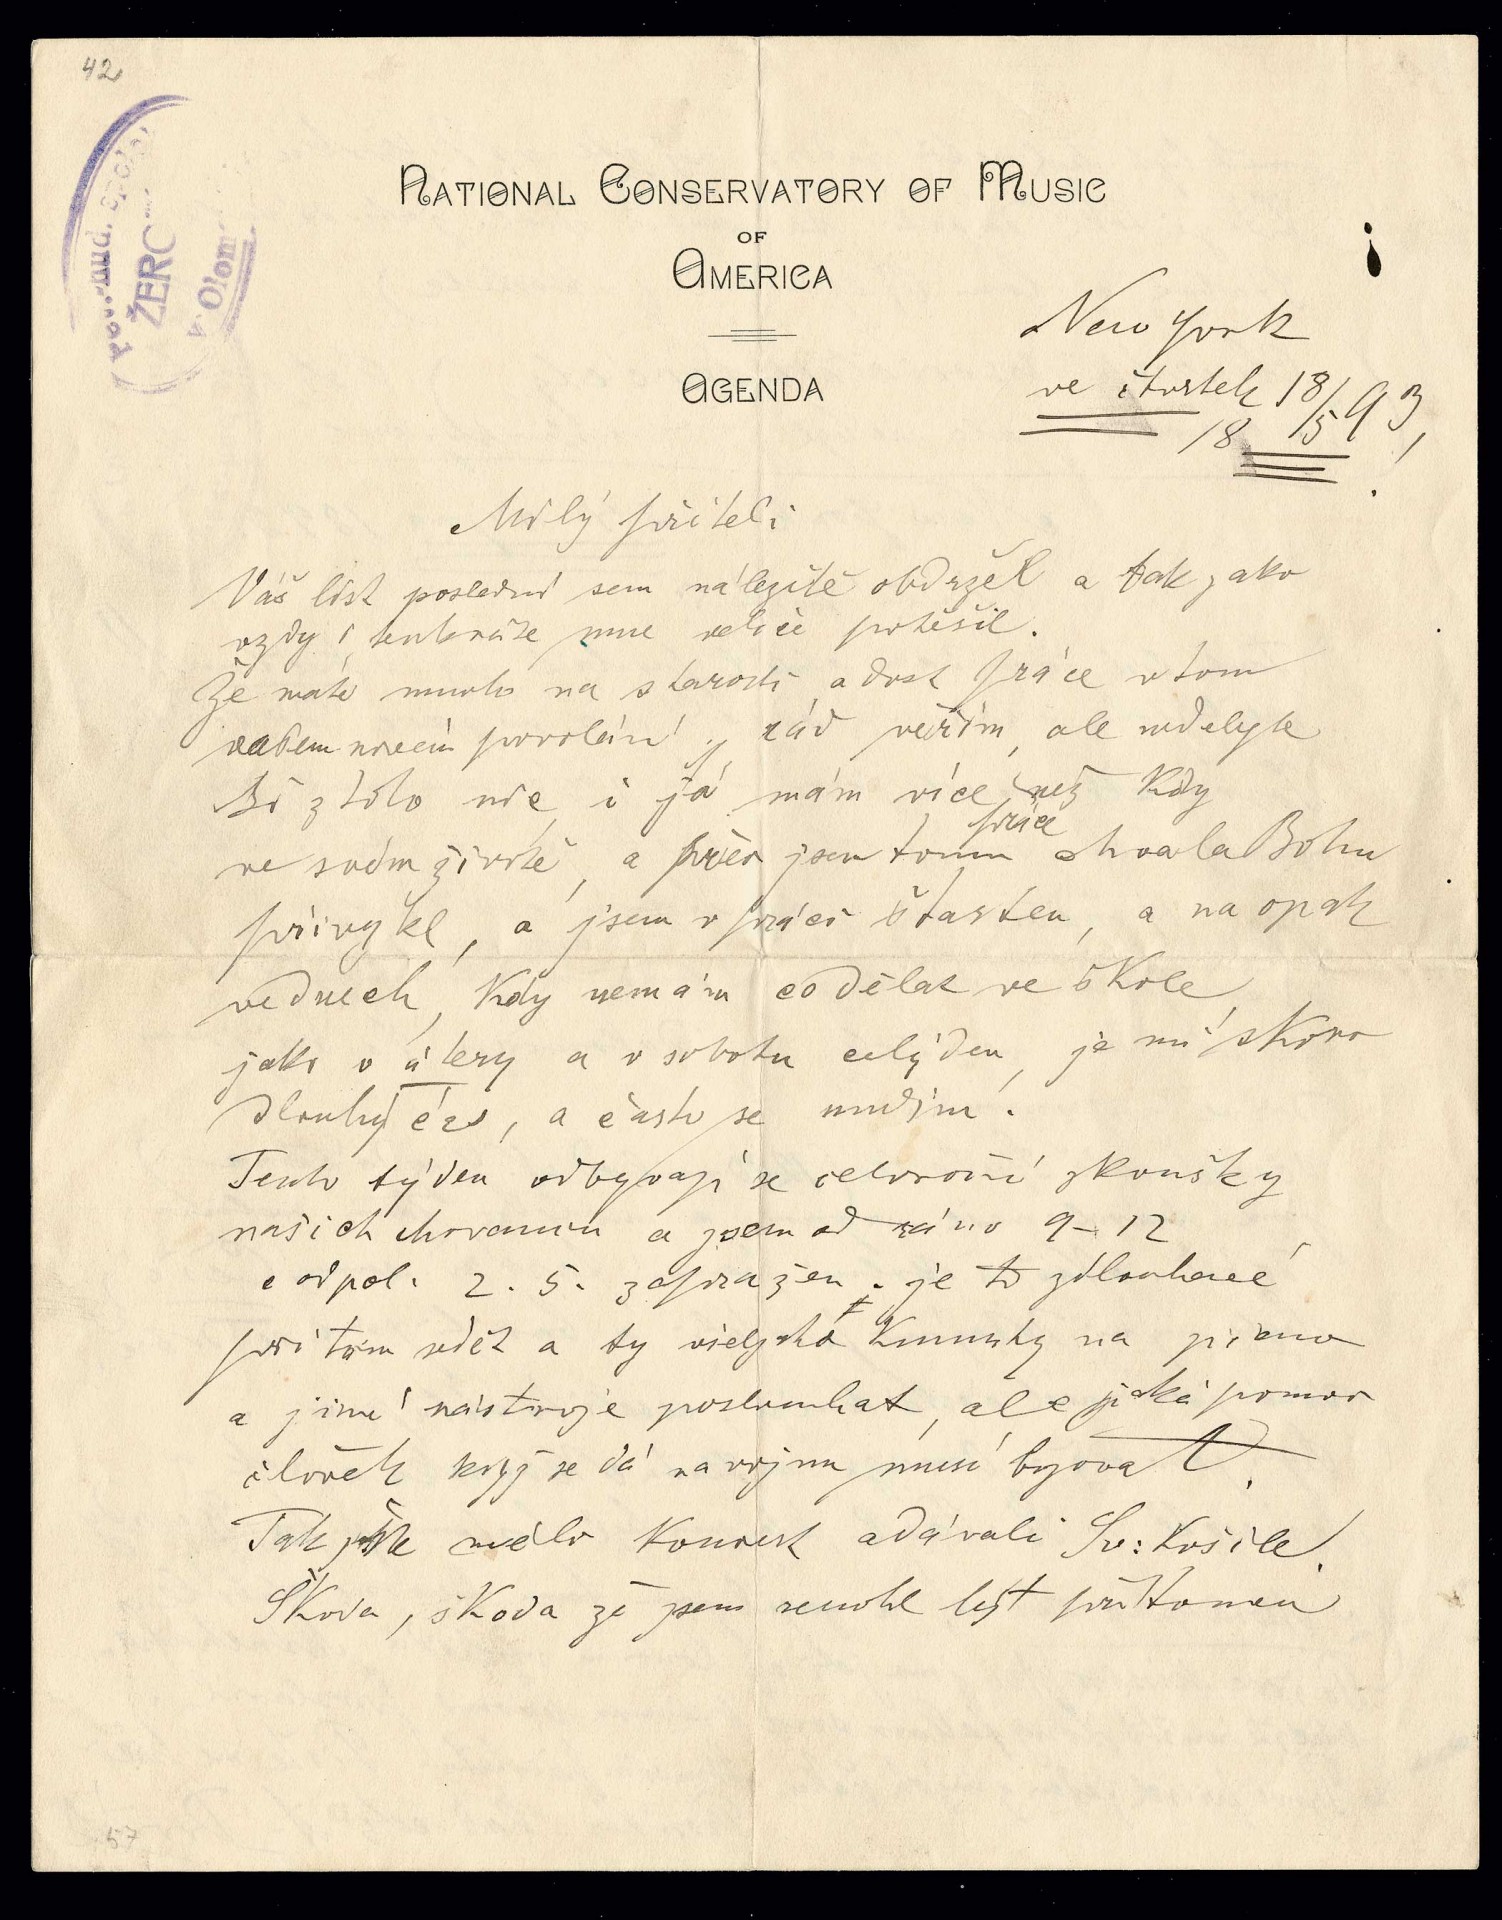 42
NATIONAL CONSERVATORY OF MUSIC
OF
AMERICA
AGENDA
ŽERO
v Olom
New York
ve čtvrtek 18/5 93
18
Milý příteli
Váš list poslední sem náležitě obdržel a tak jako
vždy i tenkráte mne velice potěšil.
Že máte mnoho na starosti a dost práce v tom
vašem novém povolání, rád věřím, ale nedělejte
Si z toho nic, i já mám více než kdy
práce
ve svém životě, a přec jsem tomu chvala Bohu
přivykl, a jsem v práci šťasten, a na opak
ve dnech, kdy nemám co dělat ve škole,
jako v útery a v sobotu celý den, je mi skoro
dlouhý čas, a často se nudím.
Tento týden odbyvají se celoroční zkoušky
našich chovanců a jsem od ráno 9–12
a odpol. 2. 5. zapražen. je to zdlouhavé
při tom sedět a ty všelijaké kumšty na piano
a jiné nástroje poslouchat, ale jaká pomoc
člověk když se dá na vojnu musí bojovat.
Tak jste měli koncert a dávali Sv: Košile!
Škoda, škoda že jsem nemohl být přítomen
57